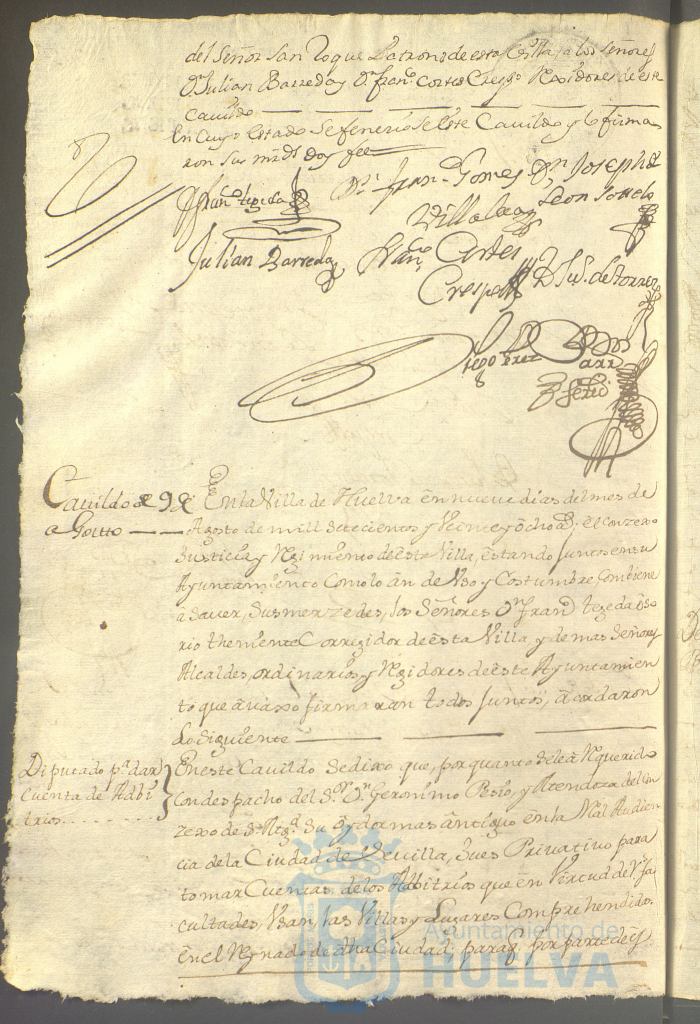 del Señor San Roque Patrono de esta Villa, a los Señores
Dn Julian Barreda y Dn Franco Cortes Crespo Rexidores de este
Cavildo
En cuyo Estado se fenecio este Cavildo y lo firma
ron sus mrds doy fee
Dn Franco texeda
Dn Fran Gomez
Villalva
Dn Joseph
Leon
Julian Barreda
Franco Cortes
Crespo
D Ju de torres
Diego Perez
Cavildo de 9 de
Agosto
En la Villa de Huelva en nueve dias del mes de
Agosto de mill Setecientos y Veinte y ocho as el Conzexo
Justicia y Reximiento de esta Villa, estando Juntos en su
Ayuntamiento Como lo an de Uso y Costumbre, Combiene
a Saver, Sus merzedes, los Señores Dn Fran texeda oso
rio theniente Corregidor de esta Villa y demas Señores
Alcaldes, ordinarios y Rexidores de este Ayuntamien
to que avaxo firmaran todos Juntos, acordaron
Lo Siguiente
Diputado pa dar
Cuenta de Adbi
trios
En este Cavildo Se dixo que, por quanto Se le a Requerido
Con despacho del Sr Dn Geronimo Pesio, y Mendoza del Con
zexo de S Magd Su oydor mas antiguo en la Real Audien
cia de la Ciudad de Sevilla, Jues Privativo para
tomar Cuentas, de los Adbitrios que en Virtud de Rs fa
cultades, Usan, las Villas y Lugares Comprehendidos
en el Reynado de dha Ciudad, para q por parte de
Ayuntamiento de
HUELVA